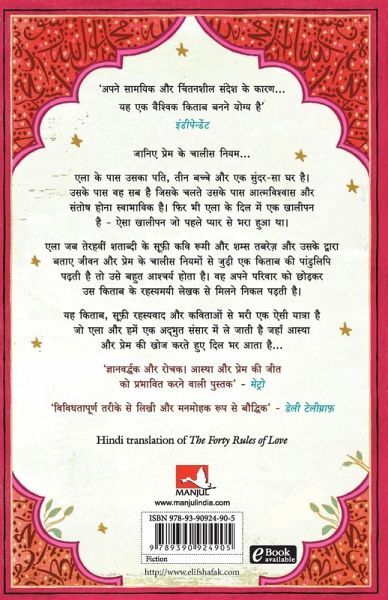 'अपने सामयिक और चिंतनशील संदेश के कारण...
यह एक वैश्विक किताब बनने योग्य है'
इंडीपेन्डेंट
जानिए प्रेम के चालीस नियम...
एला के पास उसका पति, तीन बच्चे और एक सुंदर-सा घर है।
उसके पास वह सब है जिसके चलते उसके पास आत्मविश्वास और
संतोष होना स्वाभाविक है। फिर भी एला के दिल में एक खालीपन
है - ऐसा खालीपन जो पहले प्यार से भरा हुआ था।
एला जब तेरहवीं शताब्दी के सूफ़ी कवि रूमी और शम्स तबरेज़ और उसके द्वारा
बताए जीवन और प्रेम के चालीस नियमों से जुड़ी एक किताब की पांडुलिपि
पढ़ती है तो उसे बहुत आश्चर्य होता है। वह अपने परिवार को छोड़कर
उस किताब के रहस्यमयी लेखक से मिलने निकल पड़ती है।
यह किताब, सूफ़ी रहस्यवाद और कविताओं से भरी एक ऐसी यात्रा है
जो एला और हमें एक अद्भुत संसार में ले जाती है जहाँ आस्था
और प्रेम की खोज करते हुए दिल भर आता है...
'ज्ञानवर्द्धक और रोचक। आस्था और प्रेम की जीत
को प्रभावित करने वाली पुस्तक' - मेट्रो
'विविधतापूर्ण तरीके से लिखी और मनमोहक रूप से बौद्धिक' - डेली टेलीग्राफ़
Hindi translation of The Forty Rules of Love
MANJUL
www.manjulindia.com
ISBN 978-93-90924-90-5
9 789390 924905
Fiction
http://www.elifshafak.com
eBook
available